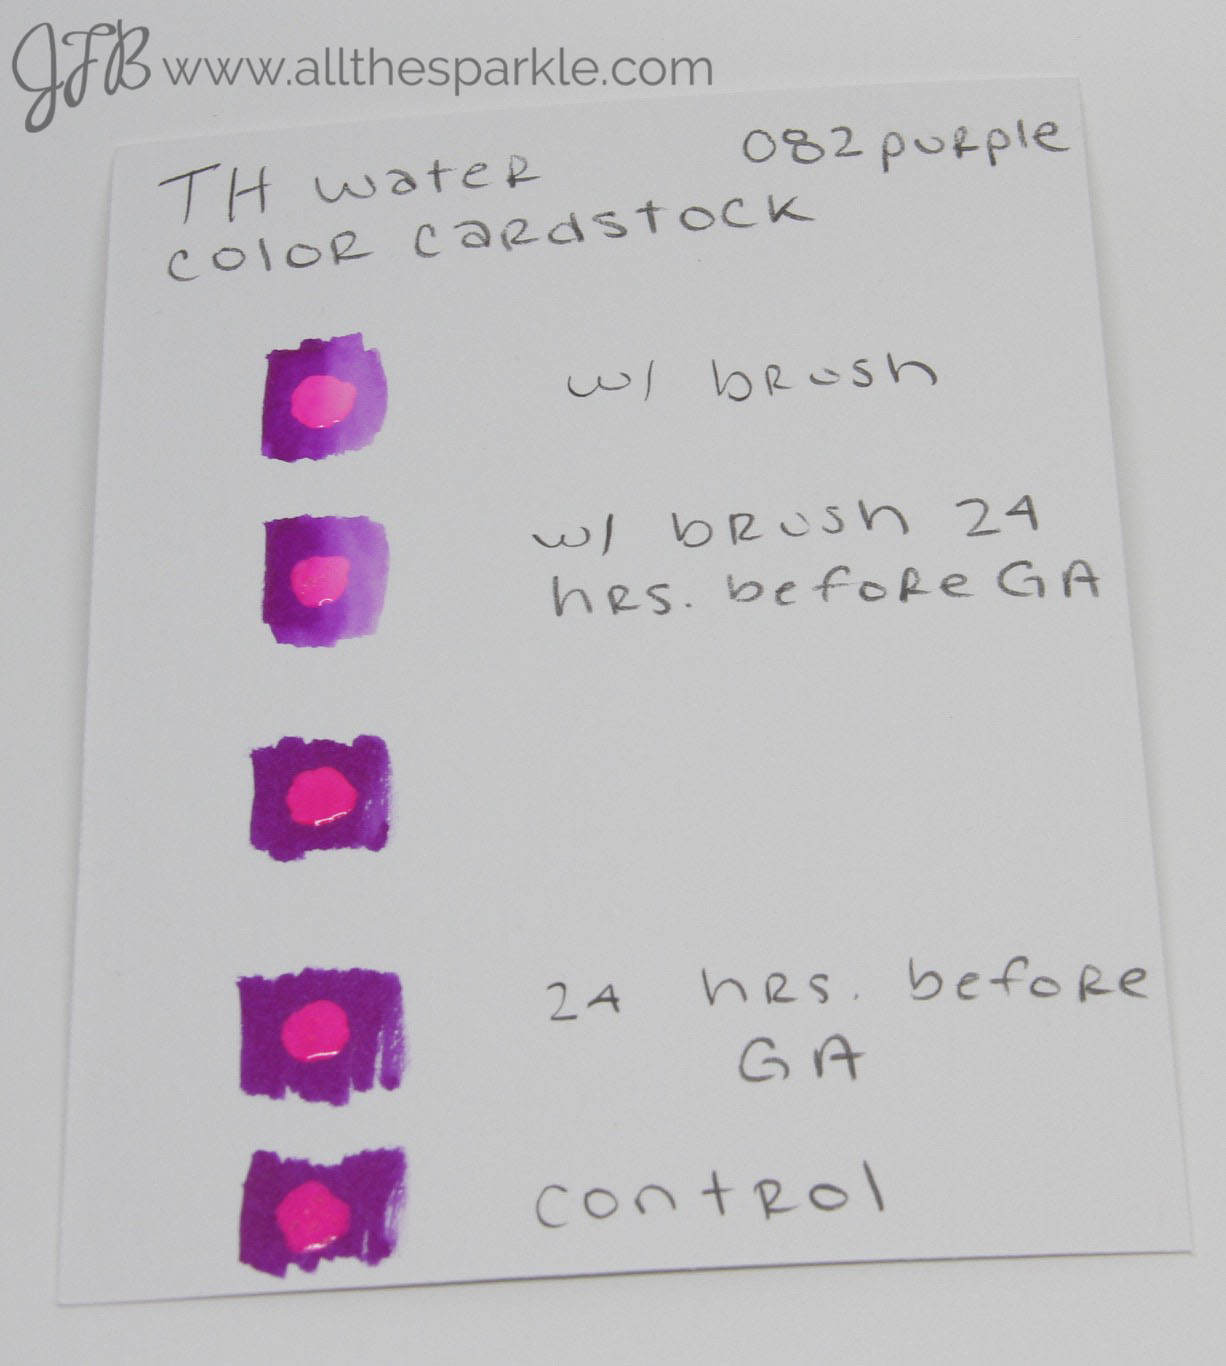 JFB www.allthesparkle.com
082 purple
TH water
color cardstock
w/ brush
w/ brush 24
hrs. before GA
24 hrs. before
GA
control